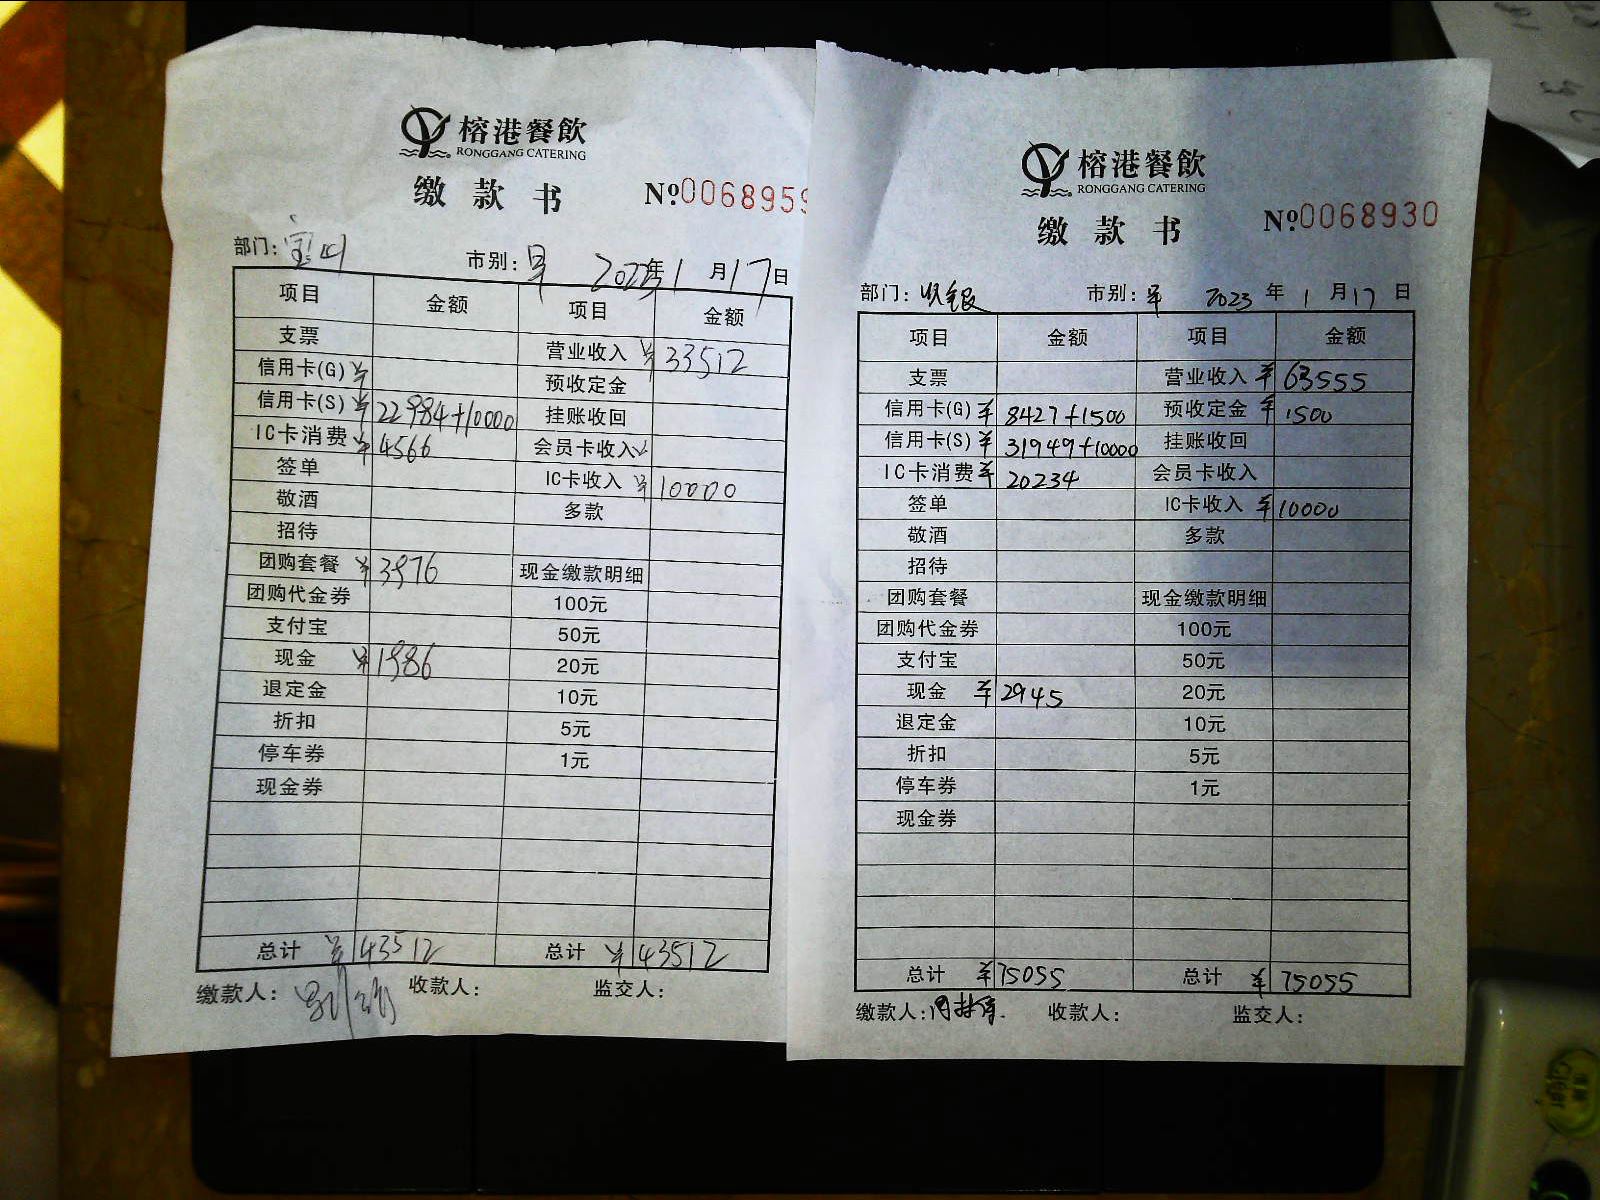 榕港餐飲
RONGGANG CATERING
缴款书 №0068959
部门: 市别:早 2023年1月17日
项目 金额 项目 金额
支票 营业收入 ¥33512
信用卡(G) ¥ 预收定金
信用卡(S) ¥22984+10000 挂账收回
IC卡消费 ¥4566 会员卡收入
签单 IC卡收入 ¥10000
敬酒 多款
招待
团购套餐 ¥3976 现金缴款明细
团购代金券 100元
支付宝 50元
现金 ¥1986 20元
退定金 10元
折扣 5元
停车券 1元
现金券
总计 ¥43512 总计 ¥43512
缴款人: 收款人: 监交人:
榕港餐飲
RONGGANG CATERING
缴款书 №0068930
部门:收银 市别:早 2023年1月17日
项目 金额 项目 金额
支票 营业收入 ¥63555
信用卡(G) ¥8427+1500 预收定金 ¥1500
信用卡(S) ¥31949+10000 挂账收回
IC卡消费 ¥20234 会员卡收入
签单 IC卡收入 ¥10000
敬酒 多款
招待
团购套餐 现金缴款明细
团购代金券 100元
支付宝 50元
现金 ¥2945 20元
退定金 10元
折扣 5元
停车券 1元
现金券
总计 ¥75055 总计 ¥75055
缴款人: 收款人: 监交人: